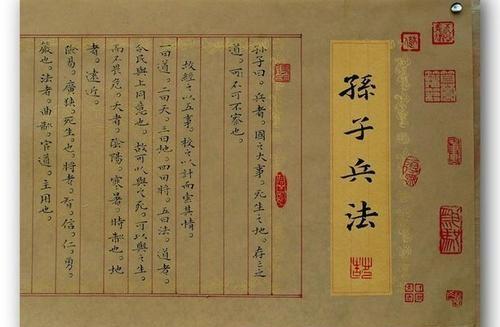 孫子兵法
孫子曰。兵者。國之大事。死生之地。存亡之
道。可不可不察也。
故經之以五事。校之以計而索其情。
一曰道。二曰天。三曰地。四曰將。五曰法。道者。
令民與上同意也。故可以與之死。可以與之生。
而不畏危。天者。陰陽。寒暑。時制也。地
者。遠近。
險易。廣狹。死生也。將者。智。信。仁。勇。
嚴也。法者。曲制。官道。主用也。